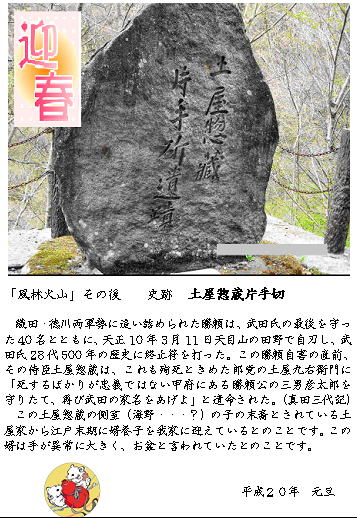 迎春
土屋惣蔵
片手斫遺蹟
「風林火山」その後　　史跡　土屋惣蔵片手切
織田・徳川両軍勢に追い詰められた勝頼は、武田氏の最後を守っ
た40名とともに、天正10年3月11日天目山の田野で自刃し、武
田氏28代500年の歴史に終止符を打った。この勝頼自害の直前、
その侍臣土屋惣蔵は、これも殉死ときめた郎党の土屋九右衛門に
「死するばかりが忠義ではない甲府にある勝頼公の三男彦太郎を
守りたて、再び武田の家名をあげよ」と遺命された。（真田三代記）
この土屋惣蔵の側室（海野・・・？）の子の末裔とされている土
屋家から江戸末期に婿養子を我家に迎えているとのことです。この
婿は手が異常に大きく、お盆と言われていたとのことです。
平成20年　元旦